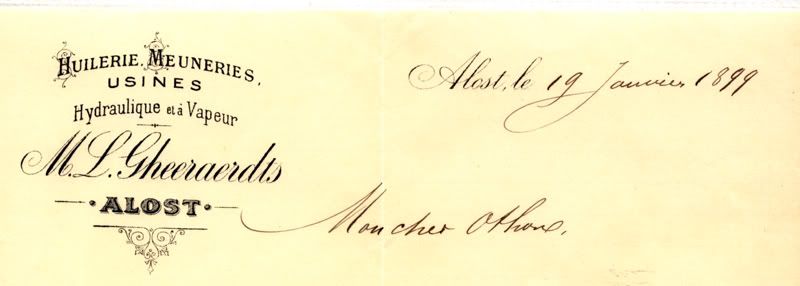 HUILERIE, MEUNERIES,
USINES
Hydraulique et à Vapeur
M.L. Gheeraerdts
ALOST
Alost, le 19 Janvier 1899
Mon cher Othon,